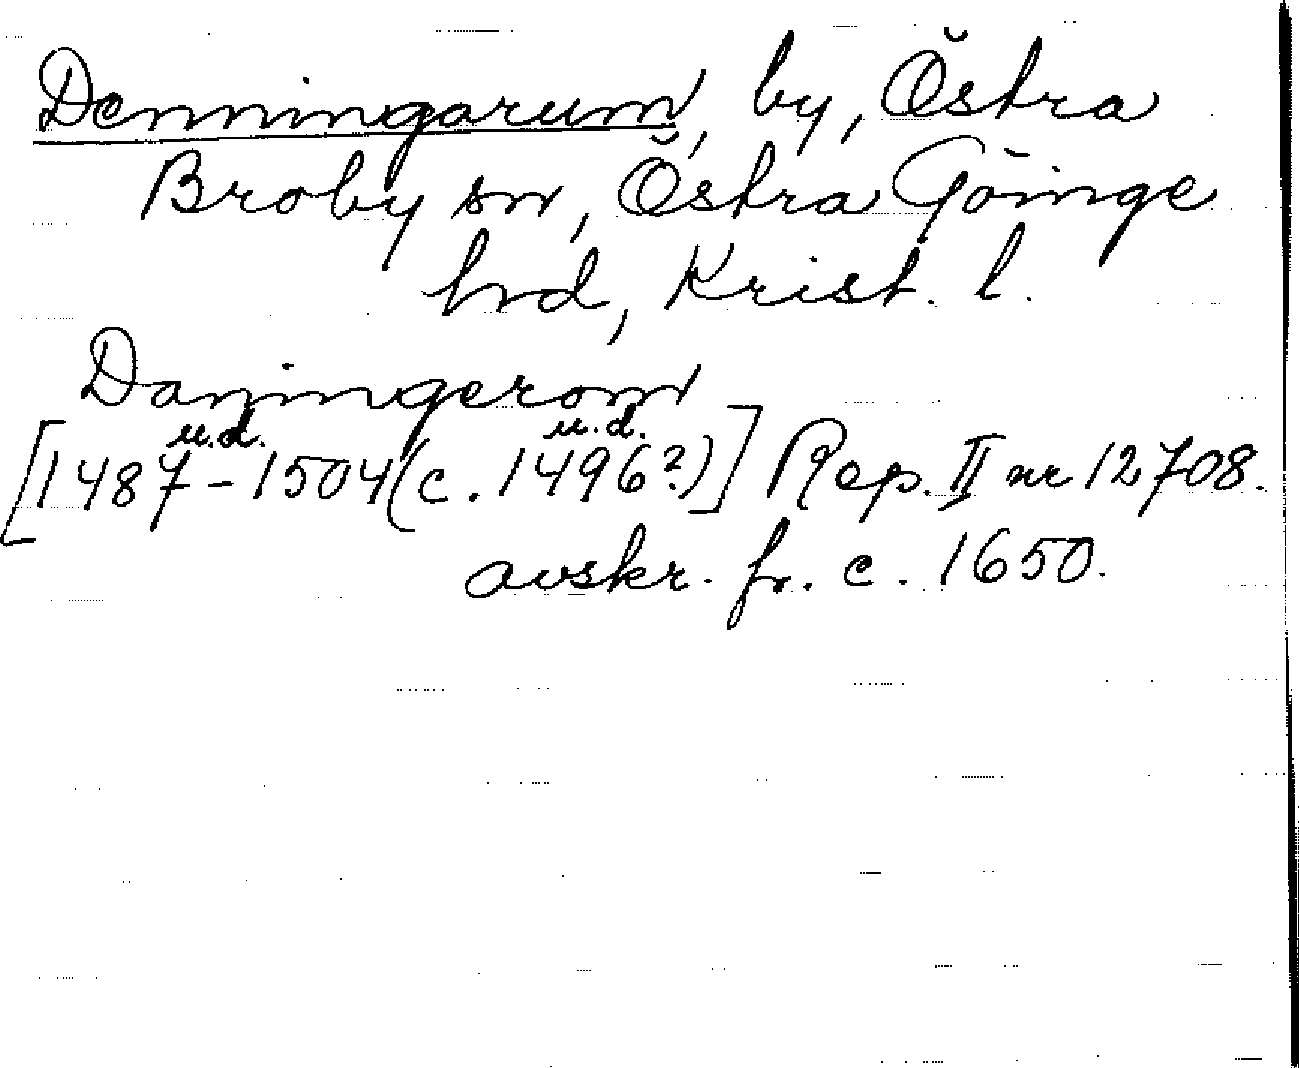 Denningarum, by, Östra
Broby sn, Östra Göinge
hrd, Krist. l.
Danningerom
u.d. u.d.
[1487-1504(c. 1496?)] Rep. II nr 12708.
avskr. fr. c. 1650.